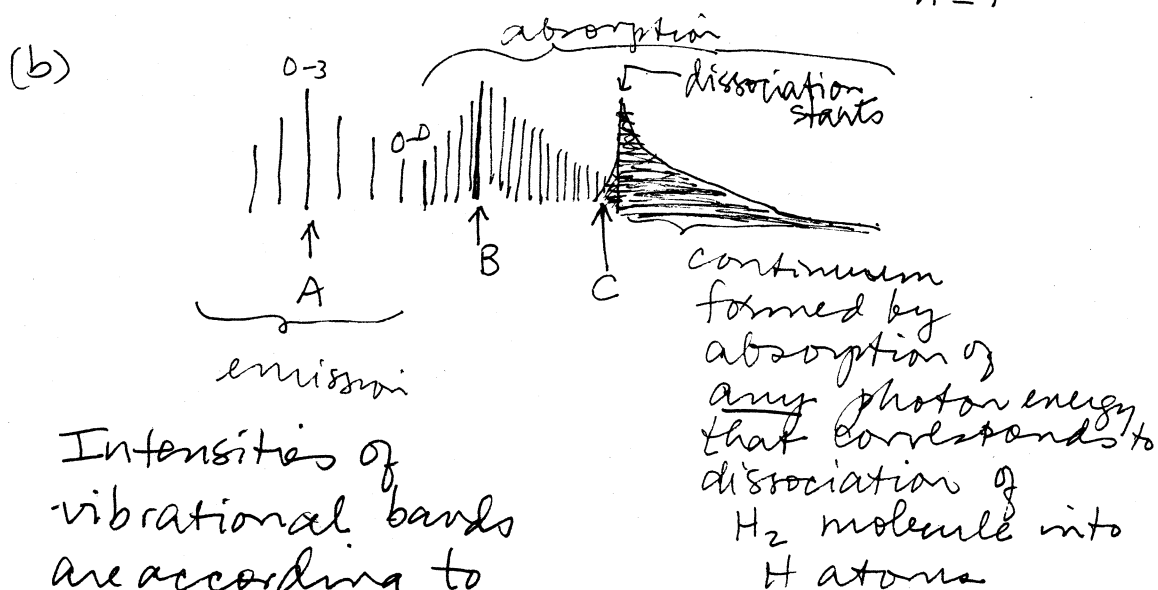 (b)
absorption
0-3
dissociation
starts
0-0
B
C
A
emission
continuum
formed by
absorption of
any photon energy
that corresponds to
dissociation of
H2 molecule into
H atoms
Intensities of
vibrational bands
are according to